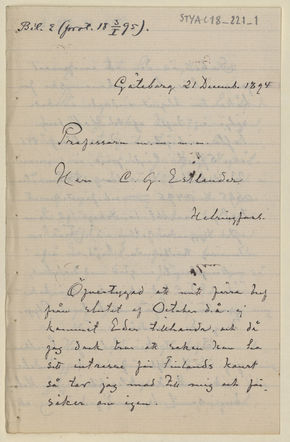 STYA C18_221_1
Bil. 2 (prot. 18 3/I 95).
Göteborg 21 Decemb. 1894
Professorn m. m. m. m.
Herr C. G. Estlander
Helsingfors.
Öfvertygad att mitt förra bref
från slutet af October d.å. ej
kommit Eder tillhanda, och då
jag dock tror att saken kan ha
sitt intresse för Finlands konst
så tar jag mod till mig och för-
söker om igen.